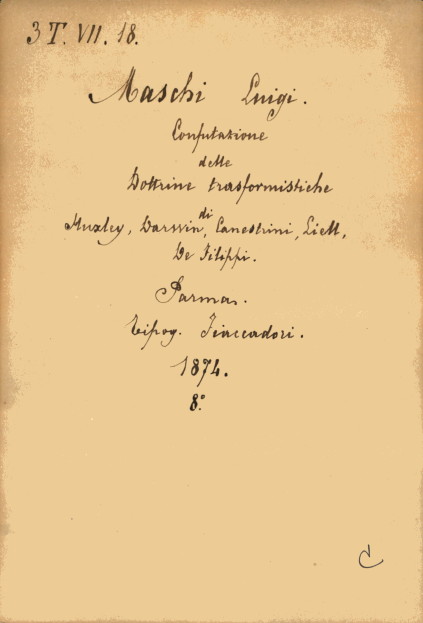 3 T. VII. 18.
Maschi Luigi.
Confutazione
delle
Dottrine trasformistiche
di
Huxley, Darwin, Canestrini, Liell,
De Filippi.
Parma.
Tipog. Fiaccadori.
1874.
8º
C